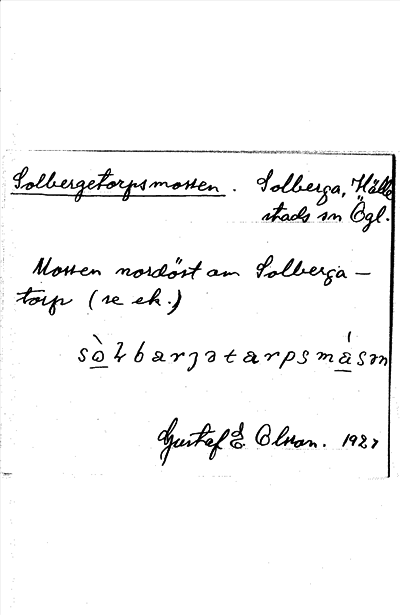 Solbergetorpsmossen. Solberga, Hälle
stads sn Ögl.
Mossen nordöst om Solberga-
torp (se ek.)
Gustaf E Olsson. 1927